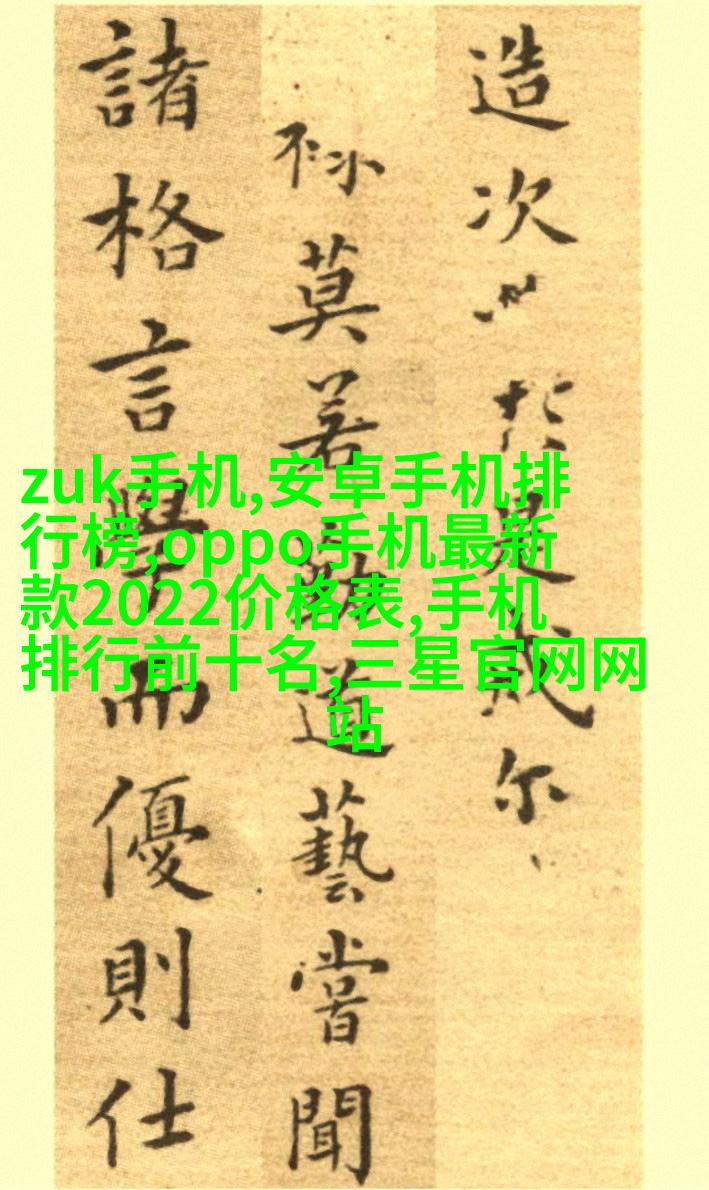 造次於是戒尔
莫若勤道藝嘗聞
諸格言學而優則仕
zuk手机,安卓手机排
行榜,oppo手机最新
款2022价格表,手机
排行前十名,三星官网网
站